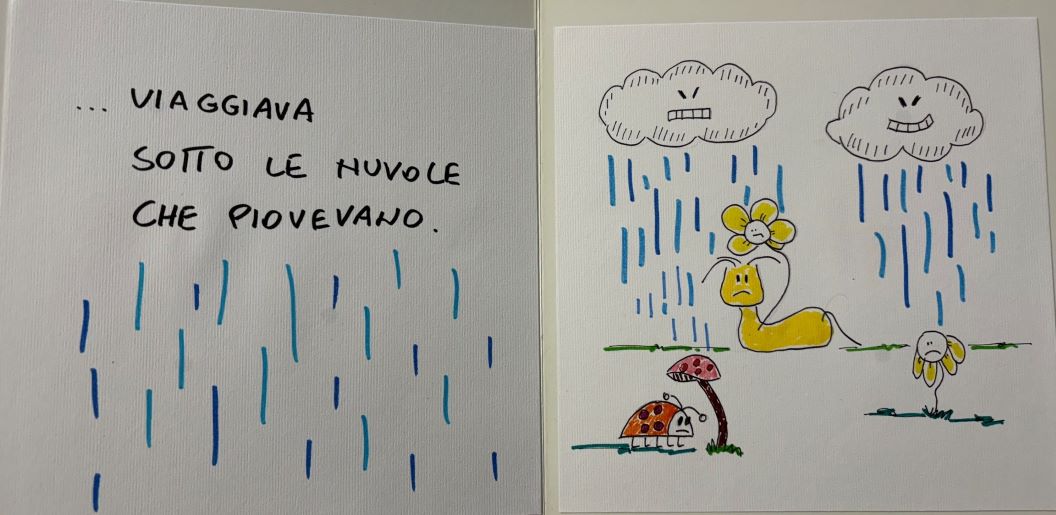 ... VIAGGIAVA
SOTTO LE NUVOLE
CHE PIOVEVANO.